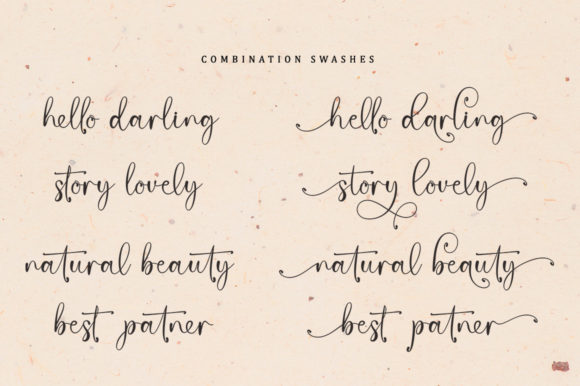 COMBINATION SWASHES
hello darling hello darling
story lovely story lovely
natural beauty natural beauty
best patner best patner